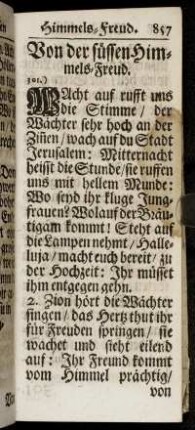 Himmels-Freud. 857
Von der süssen Him-
mels-Freud.
301.)
WAcht auf rufft uns
die Stimme / der
Wächter sehr hoch an der
Zinen / wach auf du Stadt
Jerusalem: Mitternacht
heisst die Stunde / sie ruffen
uns mit hellem Munde:
Wo send ihr kluge Jung-
frauen? Wolauf der Bräu-
tigam kommt! Steht auf
die Lampen nehmt / Halle-
luja / macht euch bereit / zu
der Hochzeit: Ihr müsset
ihm entgegen gehn.
2. Zion hört die Wächter
singen / das Hertz thut ihr
für Freuden springen / sie
wachet und sieht eilend
auf: Ihr Freund kommt
vom Himmel prächtig /
von